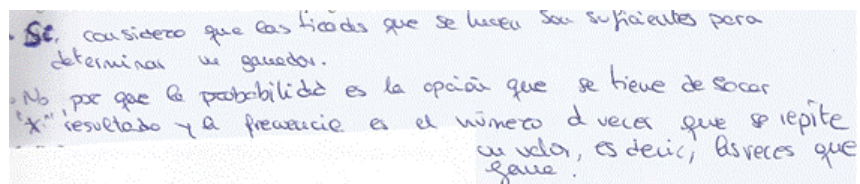 . Si, considero que las tiradas que se hacen son suficientes para
determinar un ganador.
. No, por que la probabilidad es la opción que se tiene de sacar
"x" resultado y la frecuencia es el número d veces que se repite
un valor, es decir, las veces que
gane.